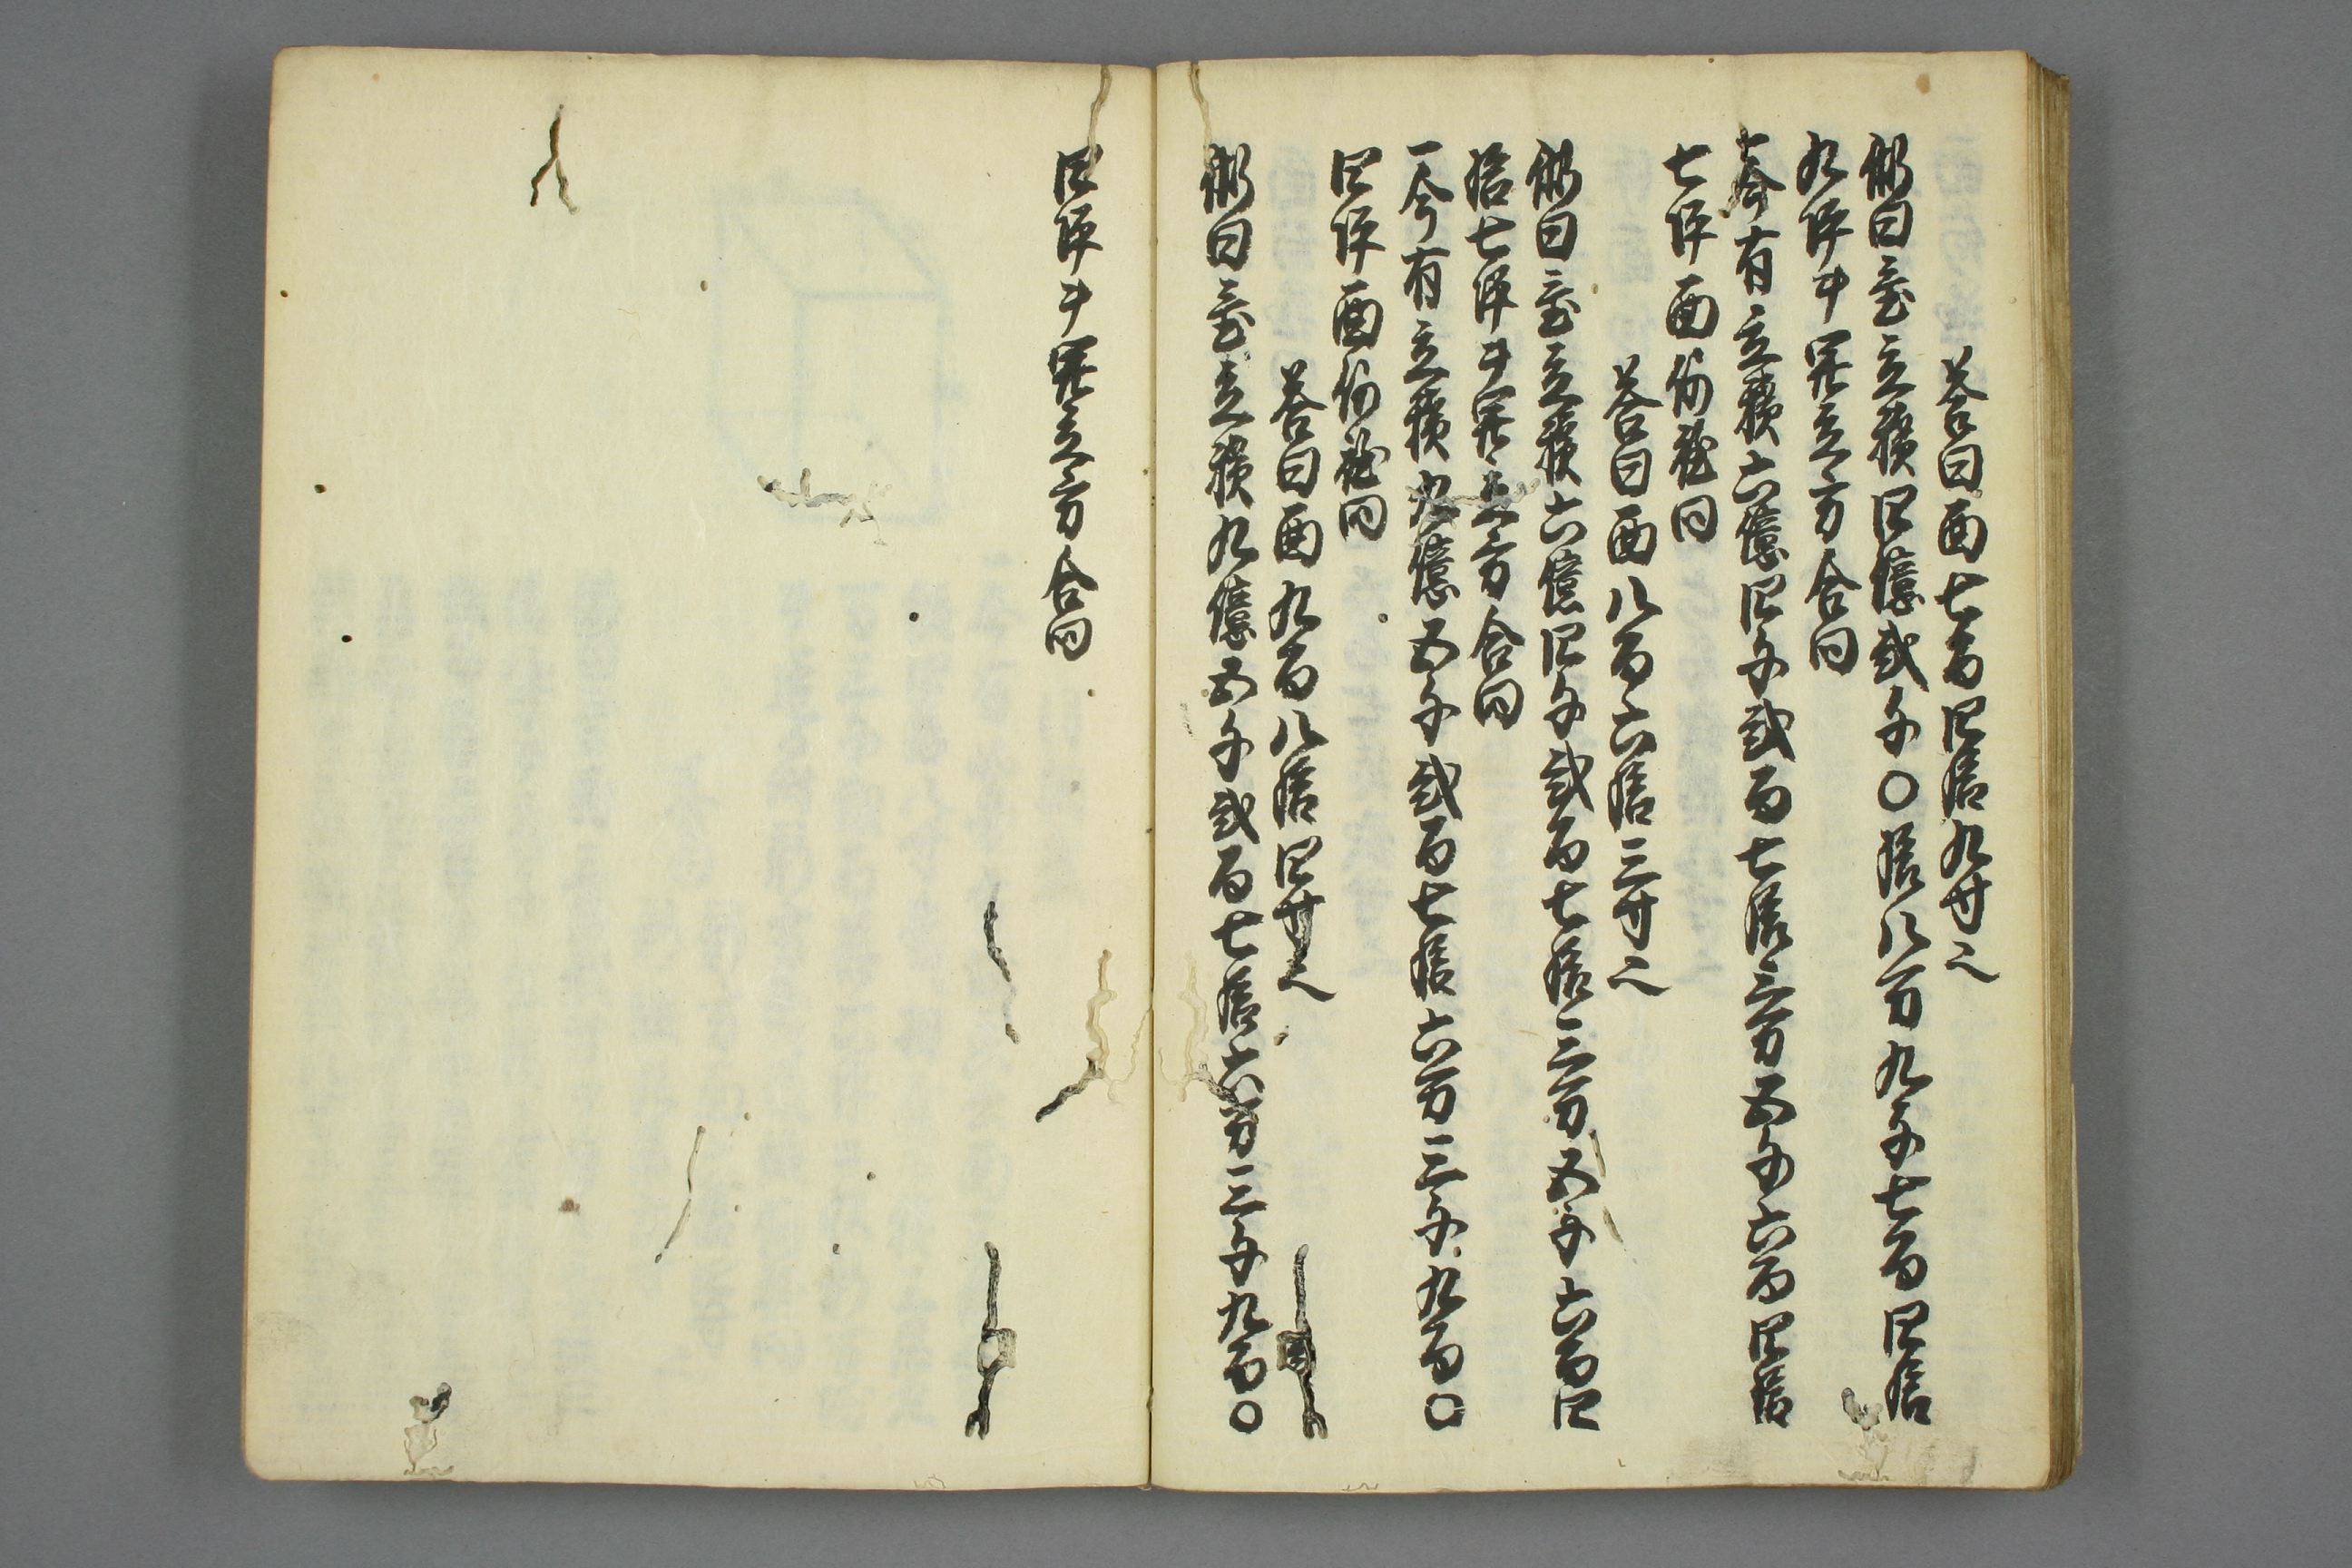 答曰面七百四拾九寸也
術曰置立積四億弐千〇拾八万九千七百四拾
九坪ヲ開立方合問
一今有立積六億四千弐百七拾三万五千六百四拾
七坪面何程問
答曰面八百六拾三寸也
術曰置立積六億四千弐百七拾三万五千六百四
拾七坪ヲ開立方合問
一今有立積九億五千弐百七拾六万三千九百〇
四坪面何程問
答曰面九百八拾四寸也
術曰置立積九億五千弐百七拾六万三千九百〇
四坪ヲ開立方合問